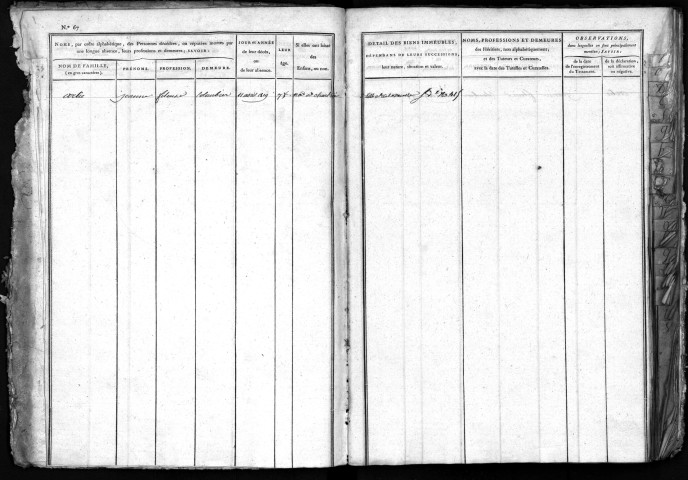 N.° 67
NOMS, par ordre alphabétique, des Personnes décédées, ou réputées mortes par
une longue absence, leurs professions et demeures; SAVOIR:
NOM DE FAMILLE,
(en gros caractères.)
PRÉNOMS.
PROFESSION.
DEMEURE.
JOUR ET ANNÉE
de leur décès,
ou
de leur absence.
LEUR
âge.
Si elles ont laissé
des
Enfans, ou non.
DÉTAIL DES BIENS IMMEUBLES,
DÉPENDANS DE LEURS SUCCESSIONS,
leur nature, situation et valeur.
NOMS, PROFESSIONS ET DEMEURES
des Héritiers; tant alphabétiquement;
et des TUTEURS et CURATEURS,
avec la date des TUTELLES et CURATELLES.
OBSERVATIONS,
dans lesquelles on fera principalement
mention; SAVOIR:
de la date
de l'enregistrement
du Testament.
de la déclaration,
soit affirmative
ou négative.
jeanne fileuse 78